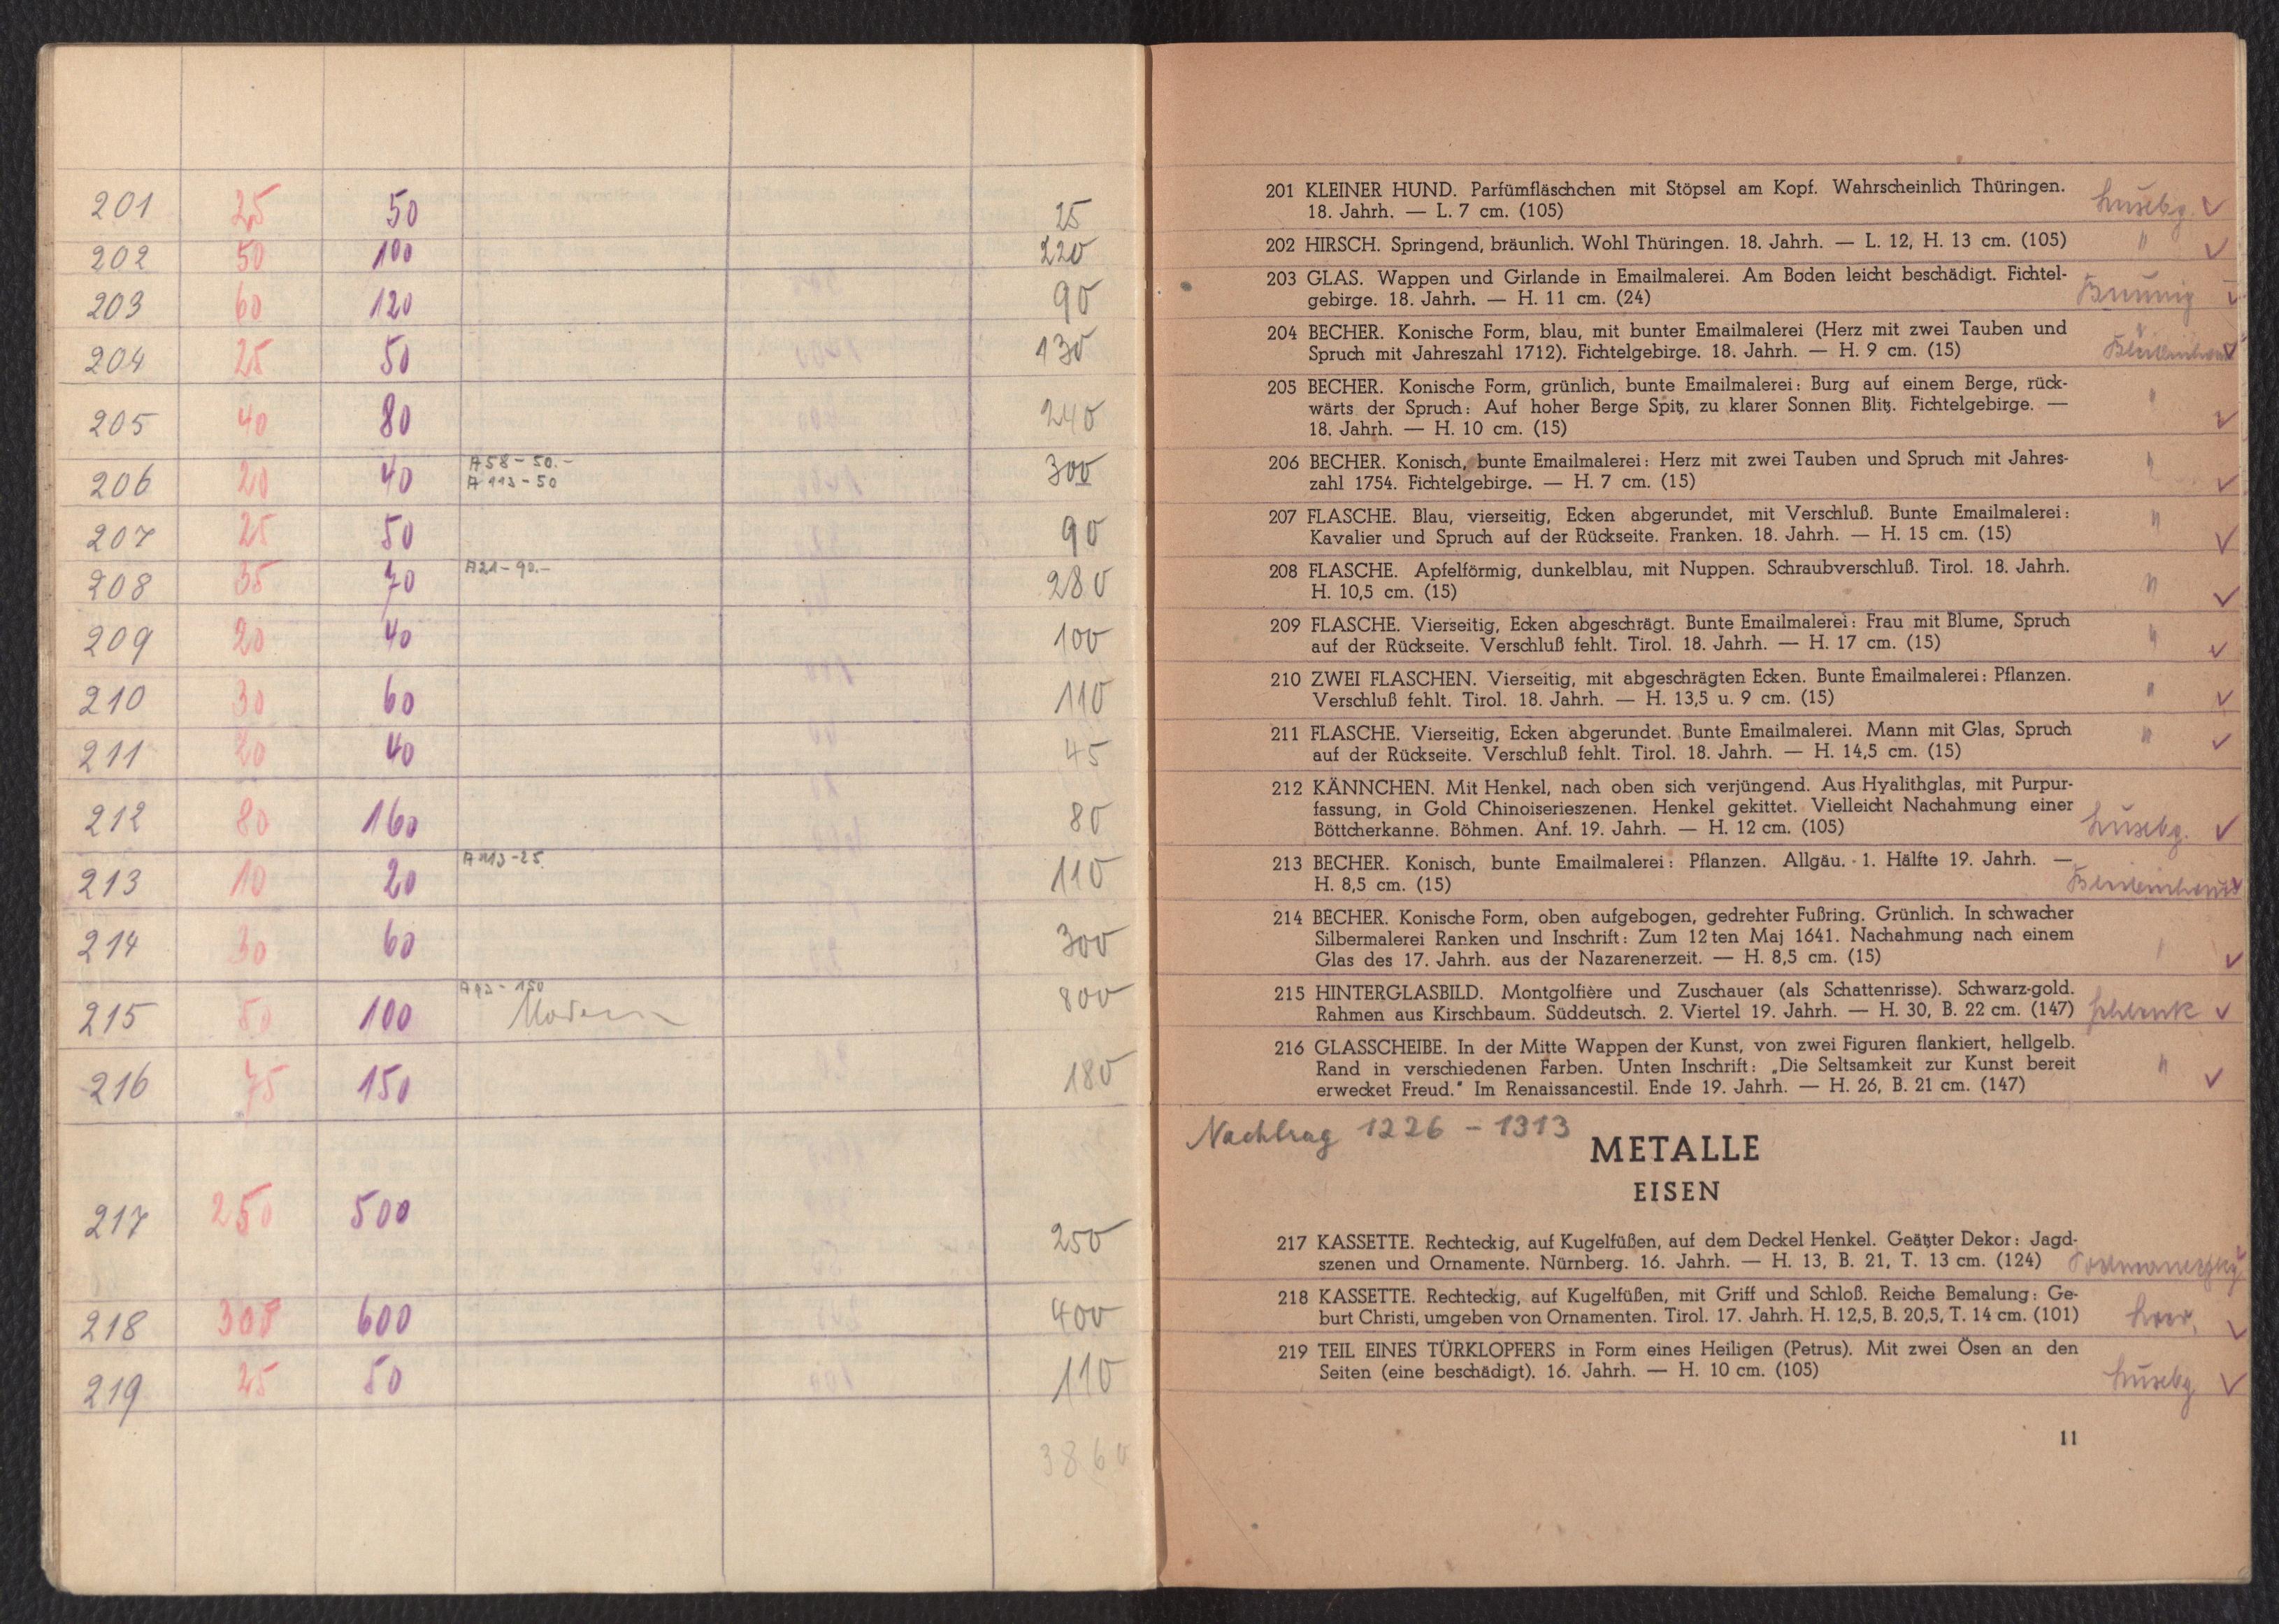 201 25 50 25
202 50 100 220
203 60 120 90
204 25 50 130
205 40 80 240
206 20 40 A58-50.- 300
A 113-50
207 25 50 90
208 35 70 A21-90.- 280
209 20 40 100
210 30 60 110
211 20 40 45
212 80 160 80
213 10 20 A113-25. 110
214 30 60 300
215 50 100 Modern 800
216 75 150 180
217 250 500 250
218 300 600 400
219 25 50 110
3860
201 KLEINER HUND. Parfümfläschchen mit Stöpsel am Kopf. Wahrscheinlich Thüringen.
18. Jahrh. — L. 7 cm. (105) ✓
202 HIRSCH. Springend, bräunlich. Wohl Thüringen. 18. Jahrh. — L. 12, H. 13 cm. (105) " ✓
203 GLAS. Wappen und Girlande in Emailmalerei. Am Boden leicht beschädigt. Fichtel-
gebirge. 18. Jahrh. — H. 11 cm. (24) ✓
204 BECHER. Konische Form, blau, mit bunter Emailmalerei (Herz mit zwei Tauben und
Spruch mit Jahreszahl 1712). Fichtelgebirge. 18. Jahrh. — H. 9 cm. (15) ✓
205 BECHER. Konische Form, grünlich, bunte Emailmalerei: Burg auf einem Berge, rück-
wärts der Spruch: Auf hoher Berge Spitz, zu klarer Sonnen Blitz. Fichtelgebirge. —
18. Jahrh. — H. 10 cm. (15) " ✓
206 BECHER. Konisch, bunte Emailmalerei: Herz mit zwei Tauben und Spruch mit Jahres-
zahl 1754. Fichtelgebirge. — H. 7 cm. (15) " ✓
207 FLASCHE. Blau, vierseitig, Ecken abgerundet, mit Verschluß. Bunte Emailmalerei:
Kavalier und Spruch auf der Rückseite. Franken. 18. Jahrh. — H. 15 cm. (15) " ✓
208 FLASCHE. Apfelförmig, dunkelblau, mit Nuppen. Schraubverschluß. Tirol. 18. Jahrh.
H. 10,5 cm. (15) " ✓
209 FLASCHE. Vierseitig, Ecken abgeschrägt. Bunte Emailmalerei: Frau mit Blume, Spruch
auf der Rückseite. Verschluß fehlt. Tirol. 18. Jahrh. — H. 17 cm. (15) " ✓
210 ZWEI FLASCHEN. Vierseitig, mit abgeschrägten Ecken. Bunte Emailmalerei: Pflanzen.
Verschluß fehlt. Tirol. 18. Jahrh. — H. 13,5 u. 9 cm. (15) " ✓
211 FLASCHE. Vierseitig, Ecken abgerundet. Bunte Emailmalerei. Mann mit Glas, Spruch
auf der Rückseite. Verschluß fehlt. Tirol. 18. Jahrh. — H. 14,5 cm. (15) " ✓
212 KÄNNCHEN. Mit Henkel, nach oben sich verjüngend. Aus Hyalithglas, mit Purpur-
fassung, in Gold Chinoiserieszenen. Henkel gekittet. Vielleicht Nachahmung einer
Böttcherkanne. Böhmen. Anf. 19. Jahrh. — H. 12 cm. (105) ✓
213 BECHER. Konisch, bunte Emailmalerei: Pflanzen. Allgäu. 1. Hälfte 19. Jahrh. —
H. 8,5 cm. (15)
214 BECHER. Konische Form, oben aufgebogen, gedrehter Fußring. Grünlich. In schwacher
Silbermalerei Ranken und Inschrift: Zum 12 ten Maj 1641. Nachahmung nach einem
Glas des 17. Jahrh. aus der Nazarenerzeit. — H. 8,5 cm. (15) ✓
215 HINTERGLASBILD. Montgolfière und Zuschauer (als Schattenrisse). Schwarz-gold.
Rahmen aus Kirschbaum. Süddeutsch. 2. Viertel 19. Jahrh. — H. 30, B. 22 cm. (147) Schenk ✓
216 GLASSCHEIBE. In der Mitte Wappen der Kunst, von zwei Figuren flankiert, hellgelb.
Rand in verschiedenen Farben. Unten Inschrift: „Die Seltsamkeit zur Kunst bereit
erwecket Freud." Im Renaissancestil. Ende 19. Jahrh. — H. 26, B. 21 cm. (147) " ✓
Nachtrag 1226 - 1313
METALLE
EISEN
217 KASSETTE. Rechteckig, auf Kugelfüßen, auf dem Deckel Henkel. Geätzter Dekor: Jagd-
szenen und Ornamente. Nürnberg. 16. Jahrh. — H. 13, B. 21, T. 13 cm. (124)
218 KASSETTE. Rechteckig, auf Kugelfüßen, mit Griff und Schloß. Reiche Bemalung: Ge-
burt Christi, umgeben von Ornamenten. Tirol. 17. Jahrh. H. 12,5, B. 20,5, T. 14 cm. (101) ✓
219 TEIL EINES TÜRKLOPFERS in Form eines Heiligen (Petrus). Mit zwei Ösen an den
Seiten (eine beschädigt). 16. Jahrh. — H. 10 cm. (105) ✓
11